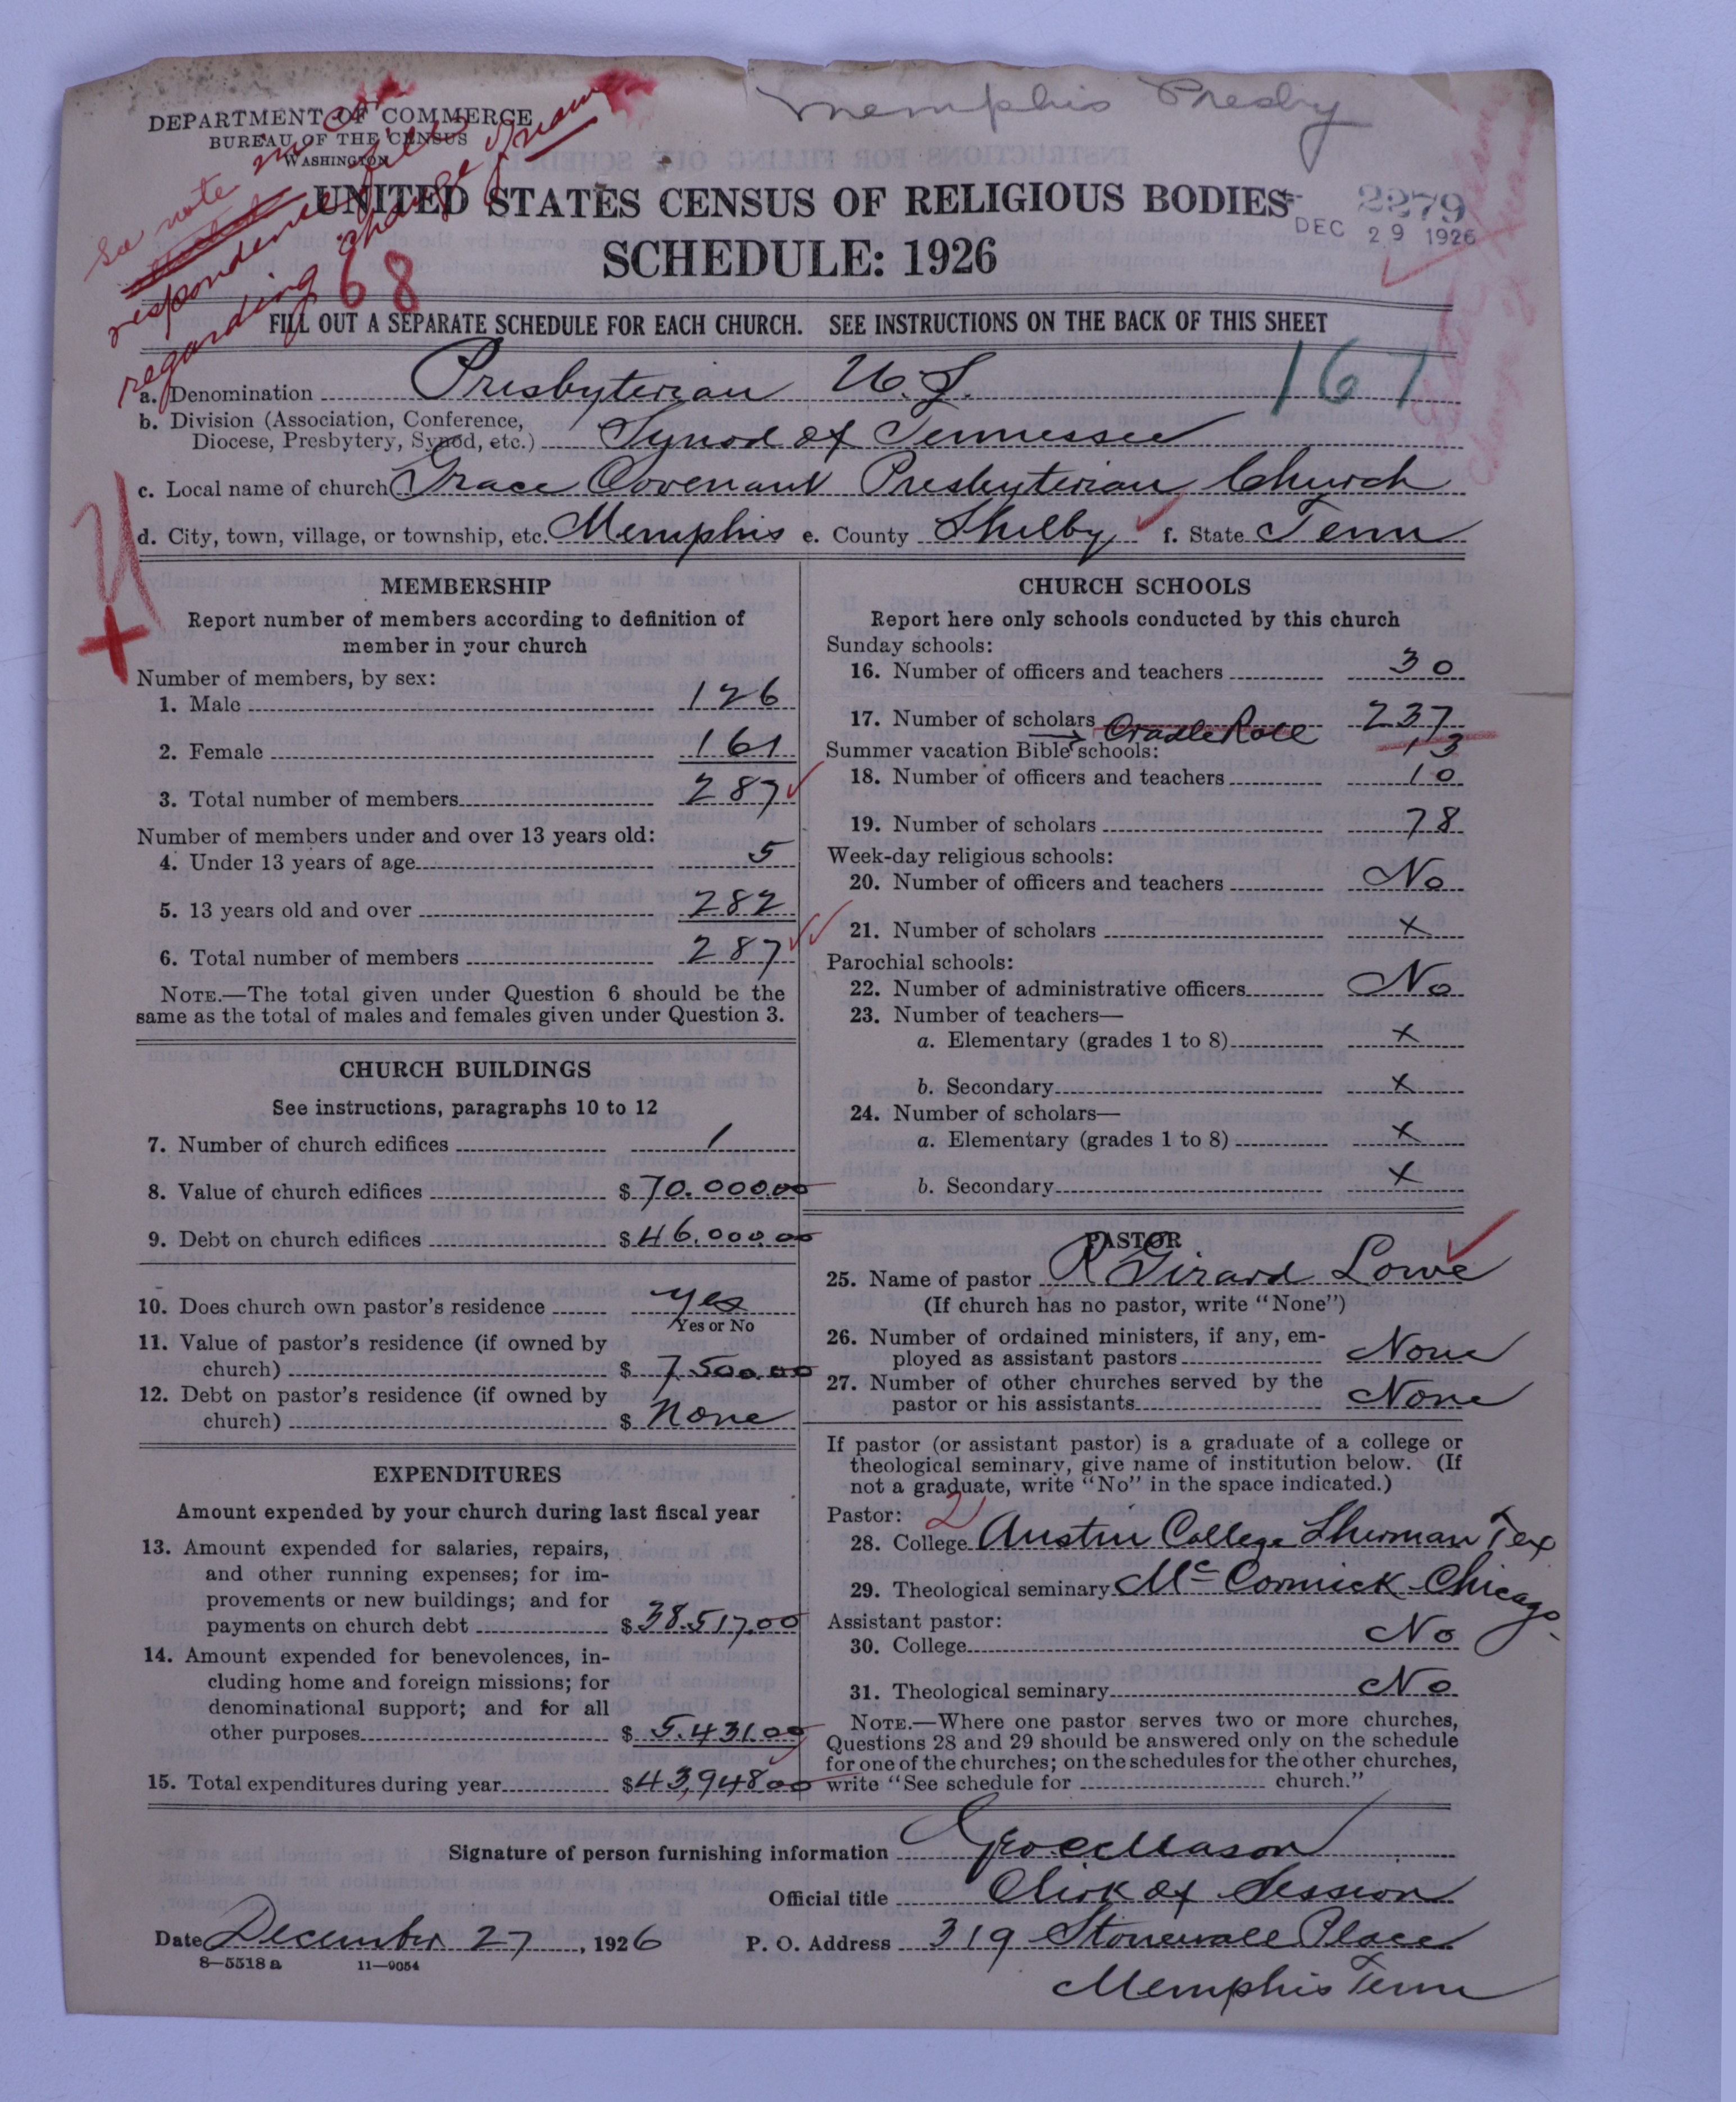 Memphis Presby
DEPARTMENT OF COMMERCE
BUREAU OF THE CENSUS
WASHINGTON
See note in cor
respondence file
regarding change of name
UNITED STATES CENSUS OF RELIGIOUS BODIES
2279
DEC 29 1926
SCHEDULE: 1926
68
FILL OUT A SEPARATE SCHEDULE FOR EACH CHURCH. SEE INSTRUCTIONS ON THE BACK OF THIS SHEET
167
a. Denomination Presbyterian U.S.
b. Division (Association, Conference,
Diocese, Presbytery, Synod, etc.) Synod of Tennessee
c. Local name of church Grace Covenant Presbyterian Church
d. City, town, village, or township, etc. Memphis e. County Shelby f. State Tenn
MEMBERSHIP
Report number of members according to definition of
member in your church
Number of members, by sex:
1. Male 126
2. Female 161
3. Total number of members 287
Number of members under and over 13 years old:
4. Under 13 years of age 5
5. 13 years old and over 282
6. Total number of members 287
NOTE.—The total given under Question 6 should be the
same as the total of males and females given under Question 3.
CHURCH BUILDINGS
See instructions, paragraphs 10 to 12
7. Number of church edifices 1
8. Value of church edifices $70.000.00
9. Debt on church edifices $46,000.00
10. Does church own pastor's residence yes
Yes or No
11. Value of pastor's residence (if owned by
church) $ 7.500.00
12. Debt on pastor's residence (if owned by
church) $ none
EXPENDITURES
Amount expended by your church during last fiscal year
13. Amount expended for salaries, repairs,
and other running expenses; for im-
provements or new buildings; and for
payments on church debt $38.517.00
14. Amount expended for benevolences, in-
cluding home and foreign missions; for
denominational support; and for all
other purposes $ 5.431.00
15. Total expenditures during year $43,948.00
CHURCH SCHOOLS
Report here only schools conducted by this church
Sunday schools:
16. Number of officers and teachers 30
17. Number of scholars 237
Cradle Roll 13
Summer vacation Bible schools:
18. Number of officers and teachers 10
19. Number of scholars 78
Week-day religious schools:
20. Number of officers and teachers No
21. Number of scholars x
Parochial schools:
22. Number of administrative officers No
23. Number of teachers—
a. Elementary (grades 1 to 8) x
b. Secondary x
24. Number of scholars—
a. Elementary (grades 1 to 8) x
b. Secondary x
PASTOR
25. Name of pastor R Girard Lowe
(If church has no pastor, write "None")
26. Number of ordained ministers, if any, em-
ployed as assistant pastors None
27. Number of other churches served by the
pastor or his assistants None
If pastor (or assistant pastor) is a graduate of a college or
theological seminary, give name of institution below. (If
not a graduate, write "No" in the space indicated.)
Pastor: 2
28. College Austin College Sherman Tex
29. Theological seminary McCormick Chicago
Assistant pastor:
30. College No
31. Theological seminary No
NOTE.—Where one pastor serves two or more churches,
Questions 28 and 29 should be answered only on the schedule
for one of the churches; on the schedules for the other churches,
write "See schedule for church."
Signature of person furnishing information Geo C Mason
Official title Clerk of Session
Date December 27, 1926 P. O. Address 319 Stonewall Place
8—5518a 11—9054
Memphis Tenn